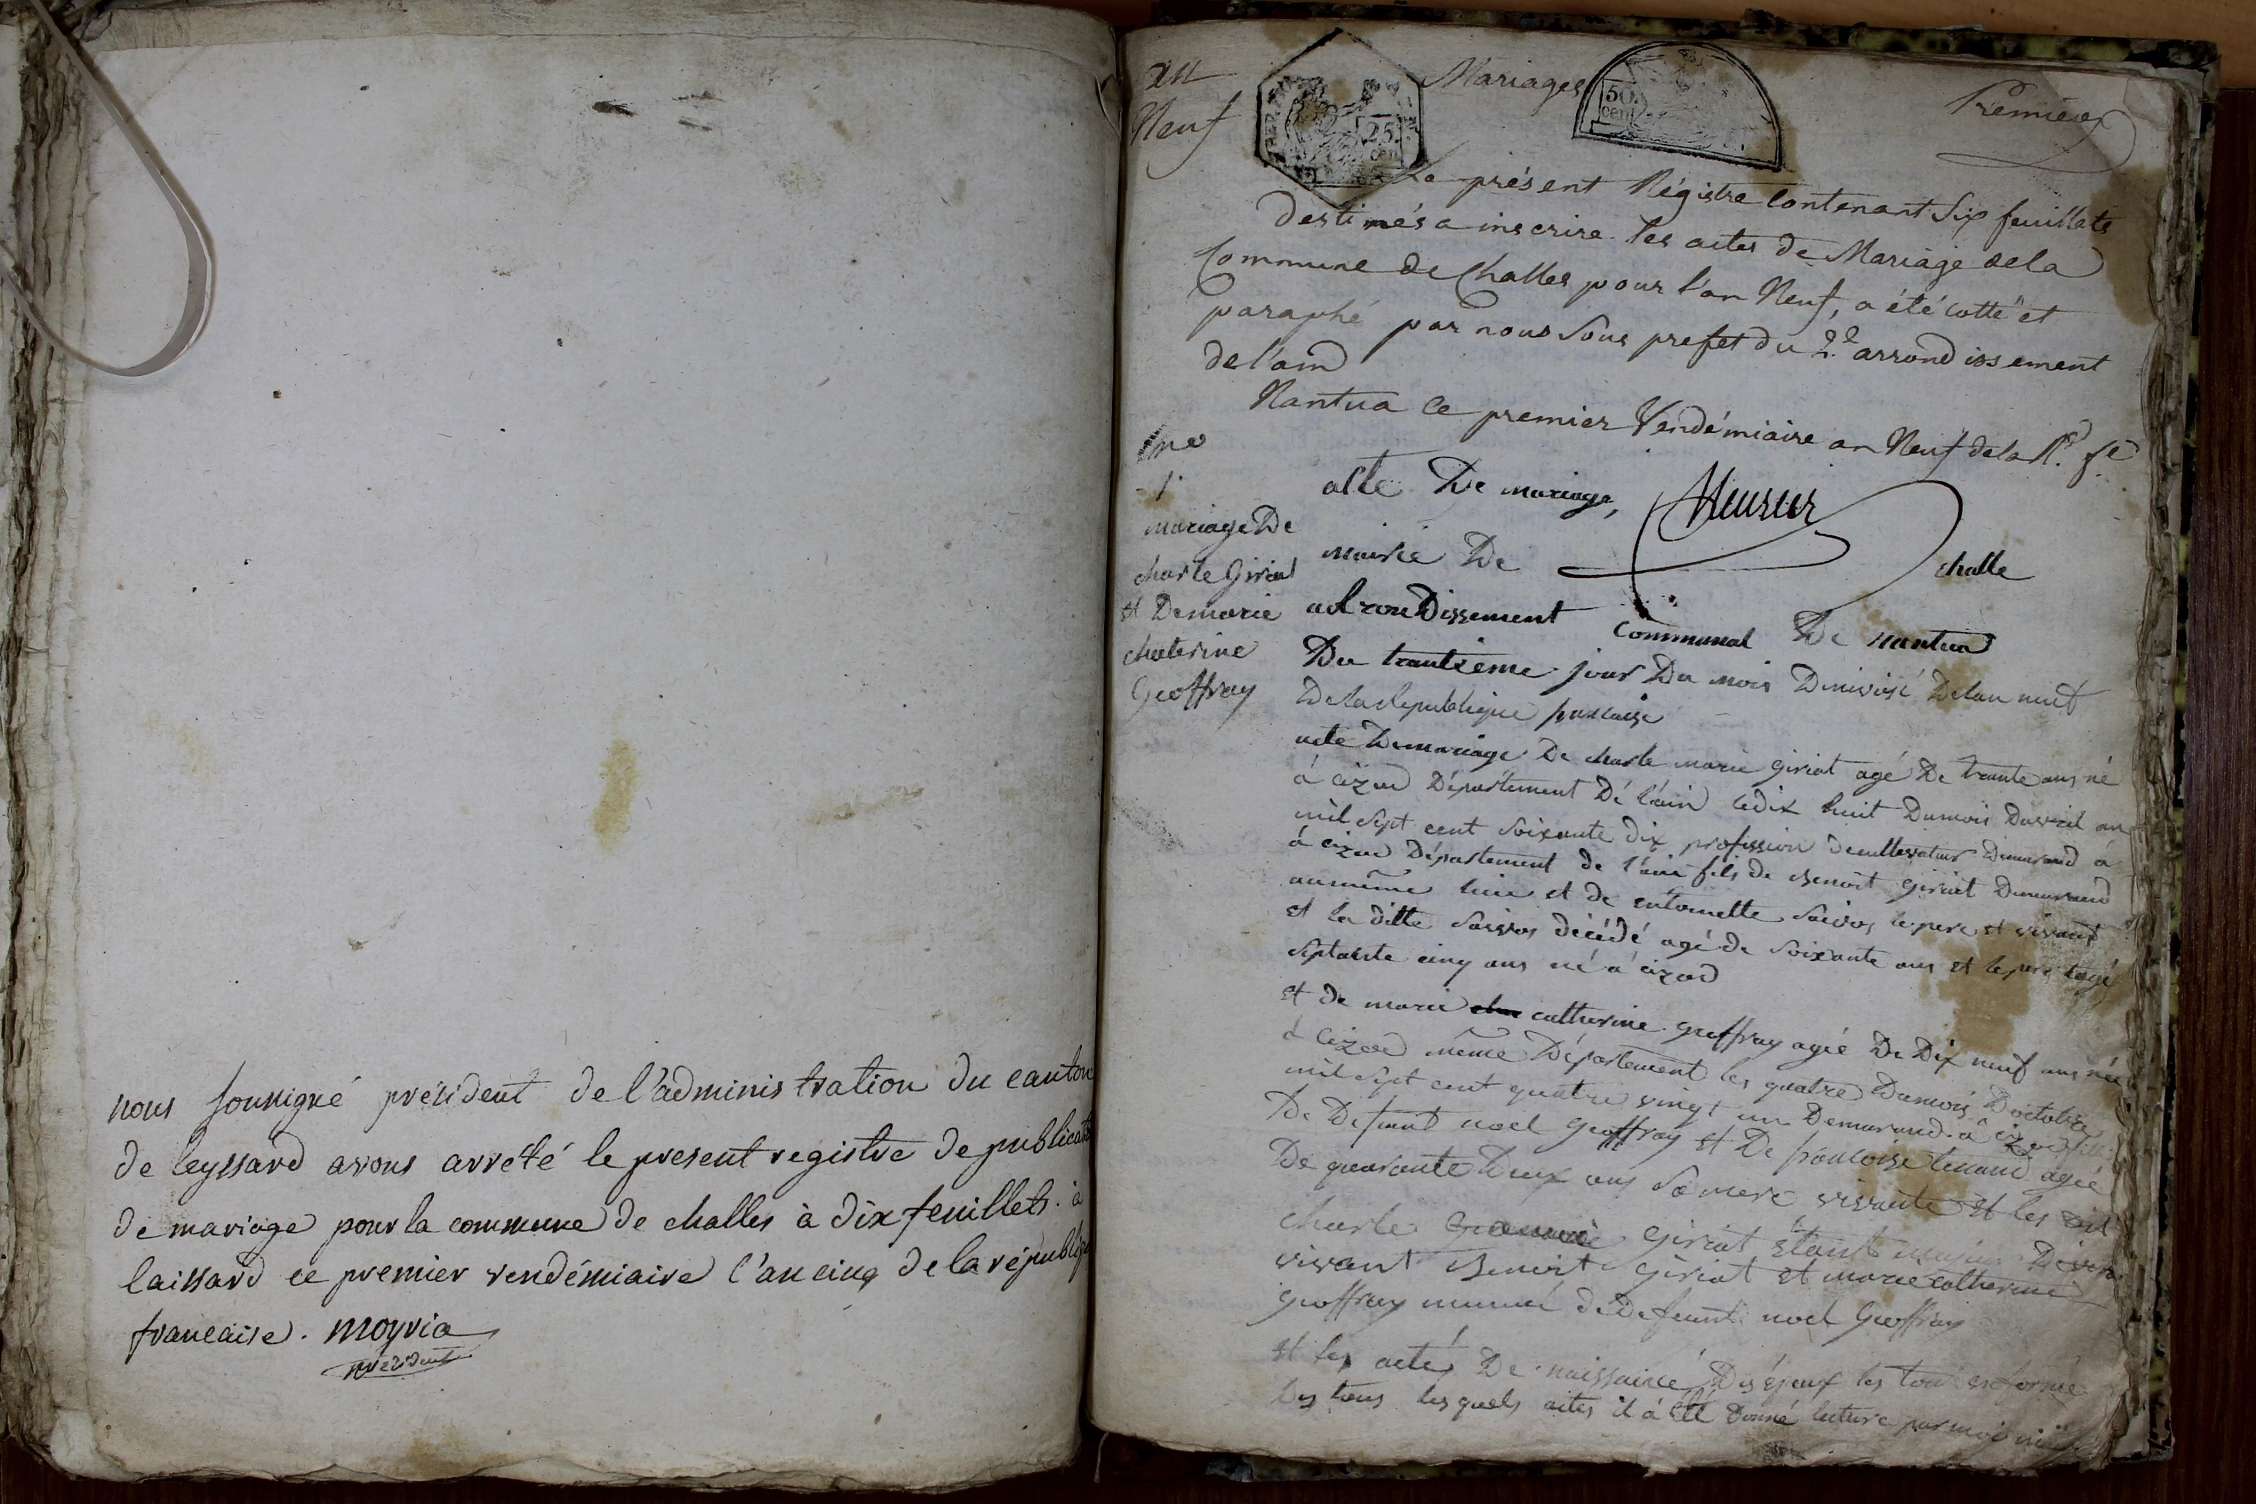 nous soussigné président de l'administration du canton
de leyssard avons arrêté le present registre de publicati
de mariage pour la commune de challes à dix feuillets. à
laissard ce premier vendémiaire l'an cinq de la républiq
francaise. moyria
président
an
Neuf
25
cen
Mariages
50
cen
Premier
Le présent Régistre Contenant Six feuillets
destinés a inscrire les actes de Mariage de la
Commune de Challes pour l'an Neuf, a été cotté et
paraphé par nous Sous prefet du 2e arrondissement
de l'ain
Nantua Ce premier Vendémiaire an Neuf de la R. fe
1
mariage De
charle Giriat
et De marie
chaterine
Geoffray
acte De mariage,
mairie De challe
arrondissement Communal De nantua
Du trantieme jour Du mois De nivose De lan neuf
De la Republique francaise
acte De mariage De charle marie giriat agé De trante ans né
á cizod Département Dé l'ain le dix huit Du mois Davril an
mil sept cent soixante dix profession De cultivateur Demurand á
á cizod Département de l'ain fils de Benoit giriat Demurand
au même lieu et de entoinette le pere et vivant
et la ditte décédé agé de soixante ans et le pere agé
septaente cinq ans né á cizod
et de marie catherine geoffray agée De Dix neuf ans née
á cizod même Département les quatre Du mois Doctobre
mil sept cent quatre vingt un Demurand á cizod fille
De Defunt noel Geoffray et De francoise agée
De quarante Deux ans Sa mere vivante et les
charle giriat étant
vivant Benoit giriat et marie catherine
geoffray de Defunt noel Geoffray
et les actés De naissance Des
Des tous les quels actes il á été Donné lecture par moi